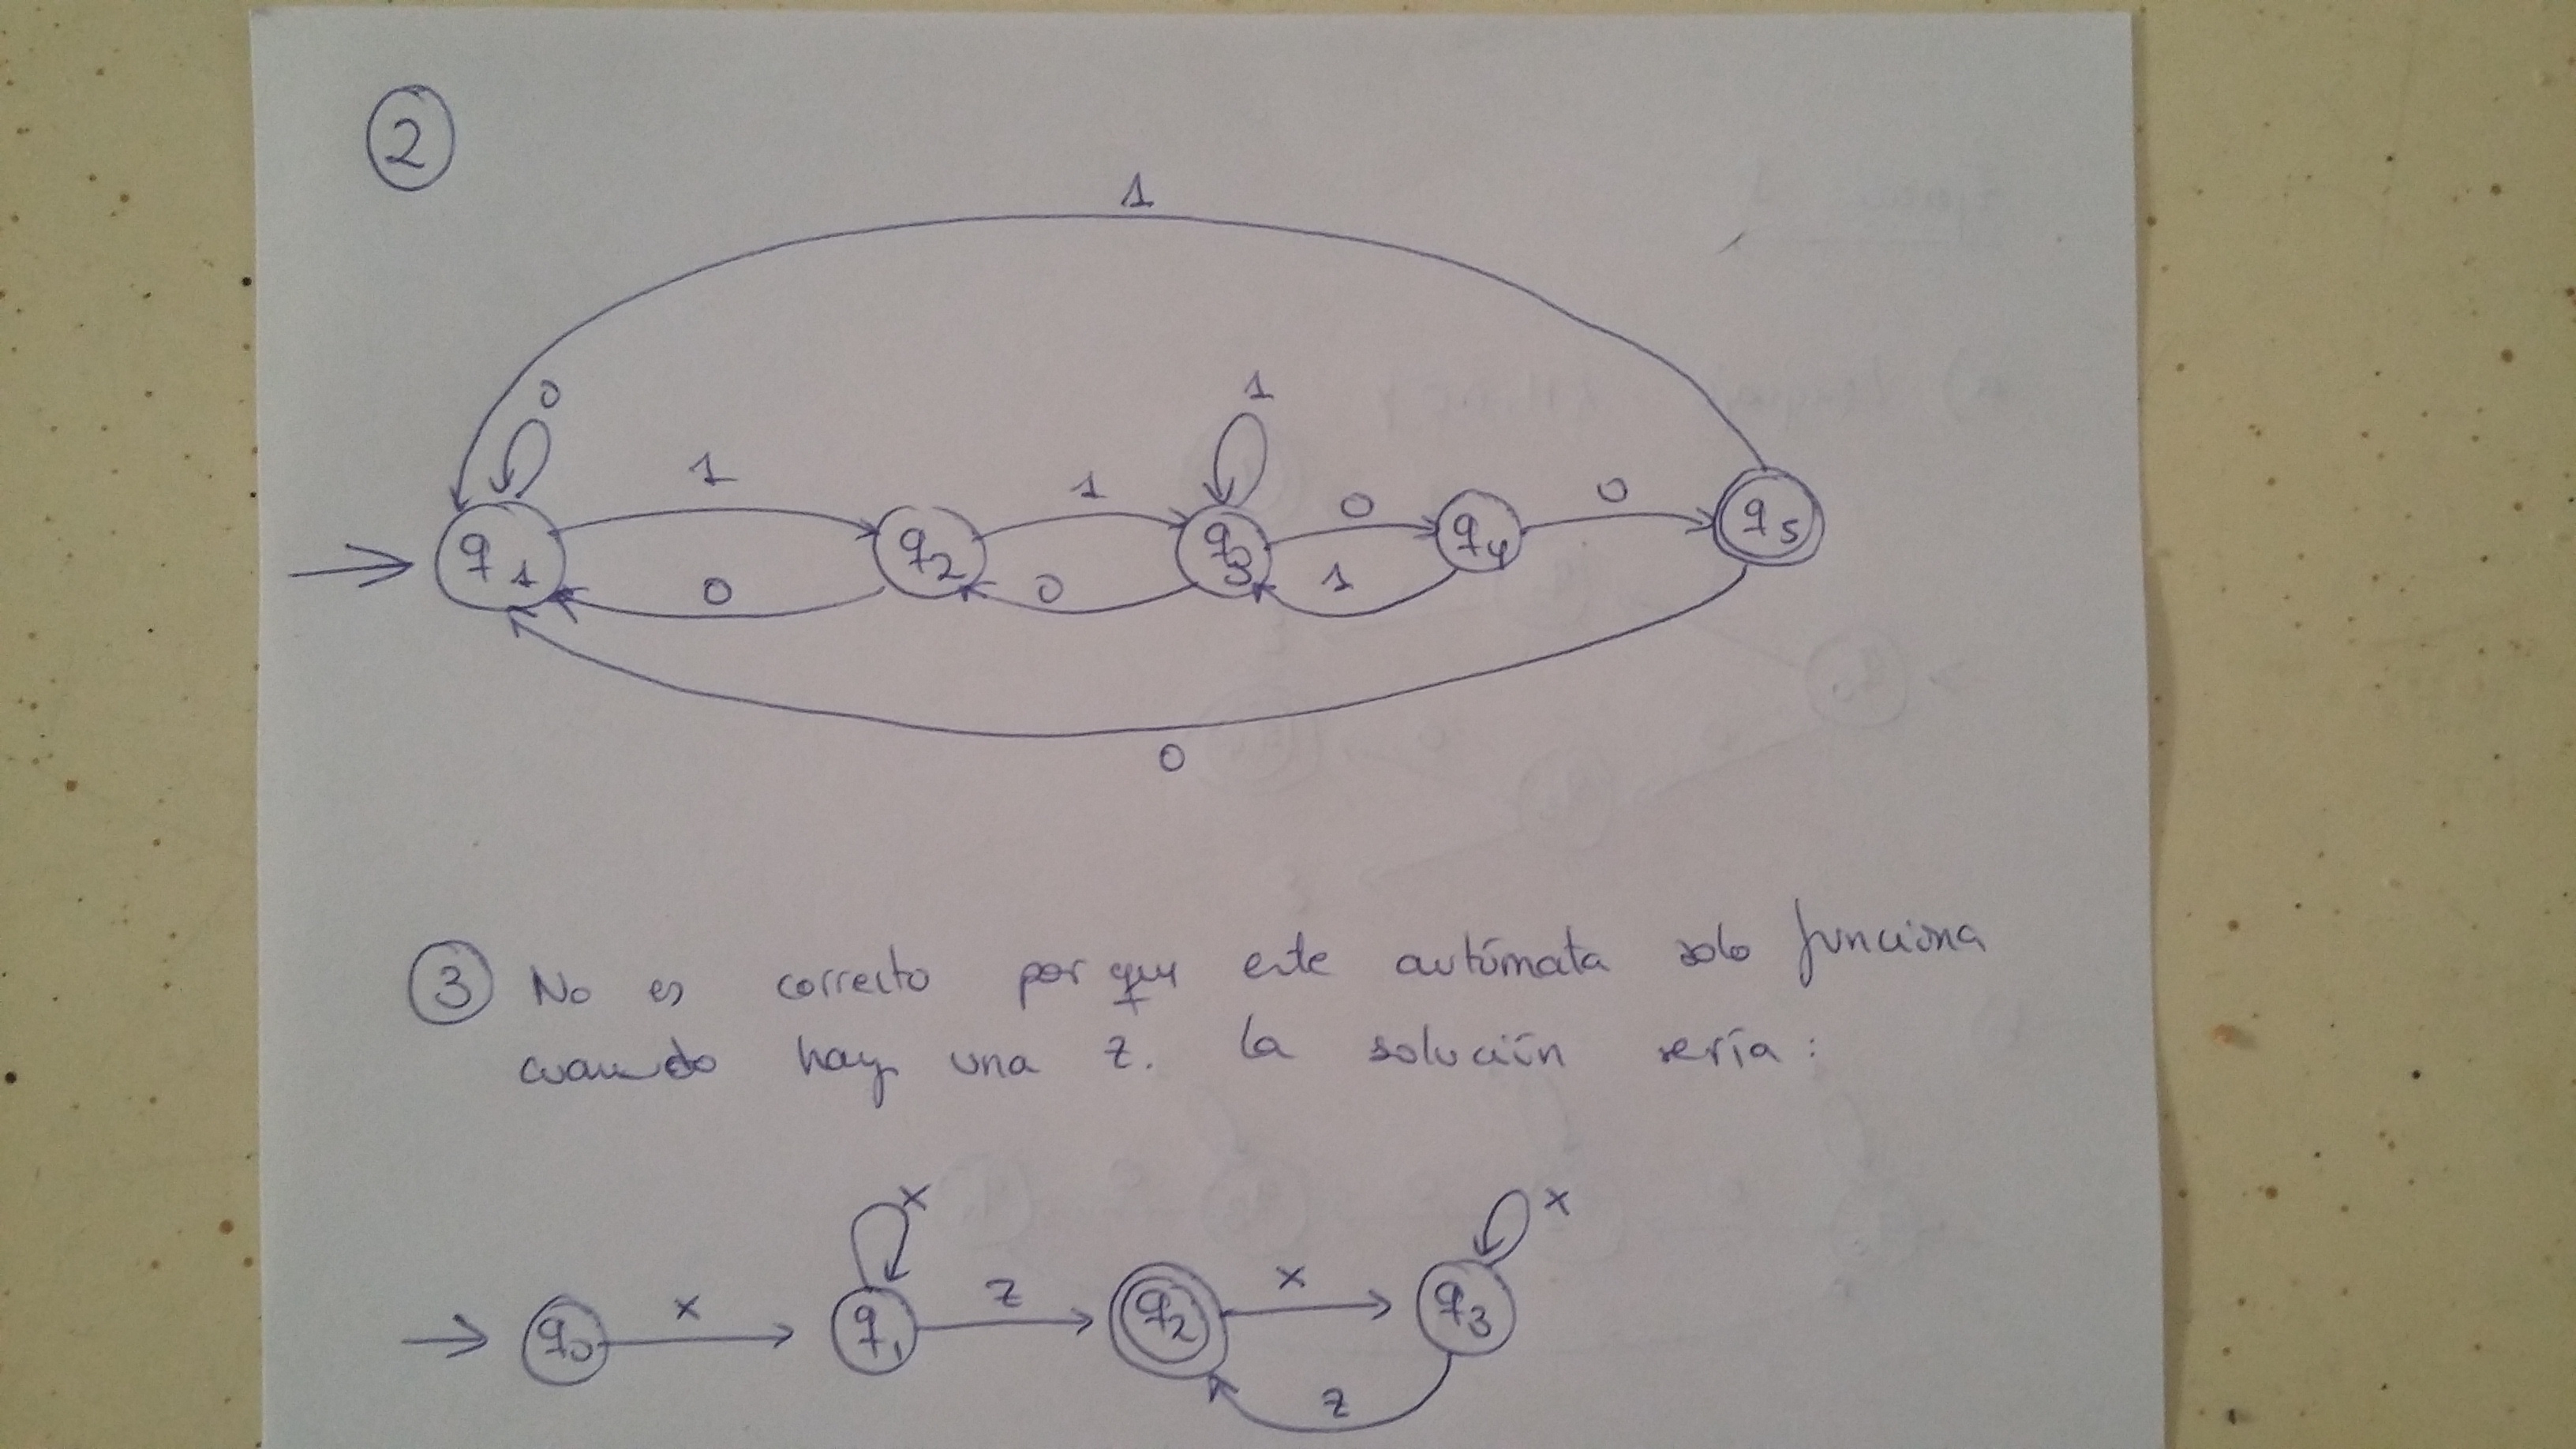 2
1
0
1
1
1
0
0
q1
q2
q3
q4
q5
0
0
1
0
3 No es correcto porque este autómata solo funciona
cuando hay una z. la solución sería:
x
x
q0
x
q1
z
q2
x
q3
z